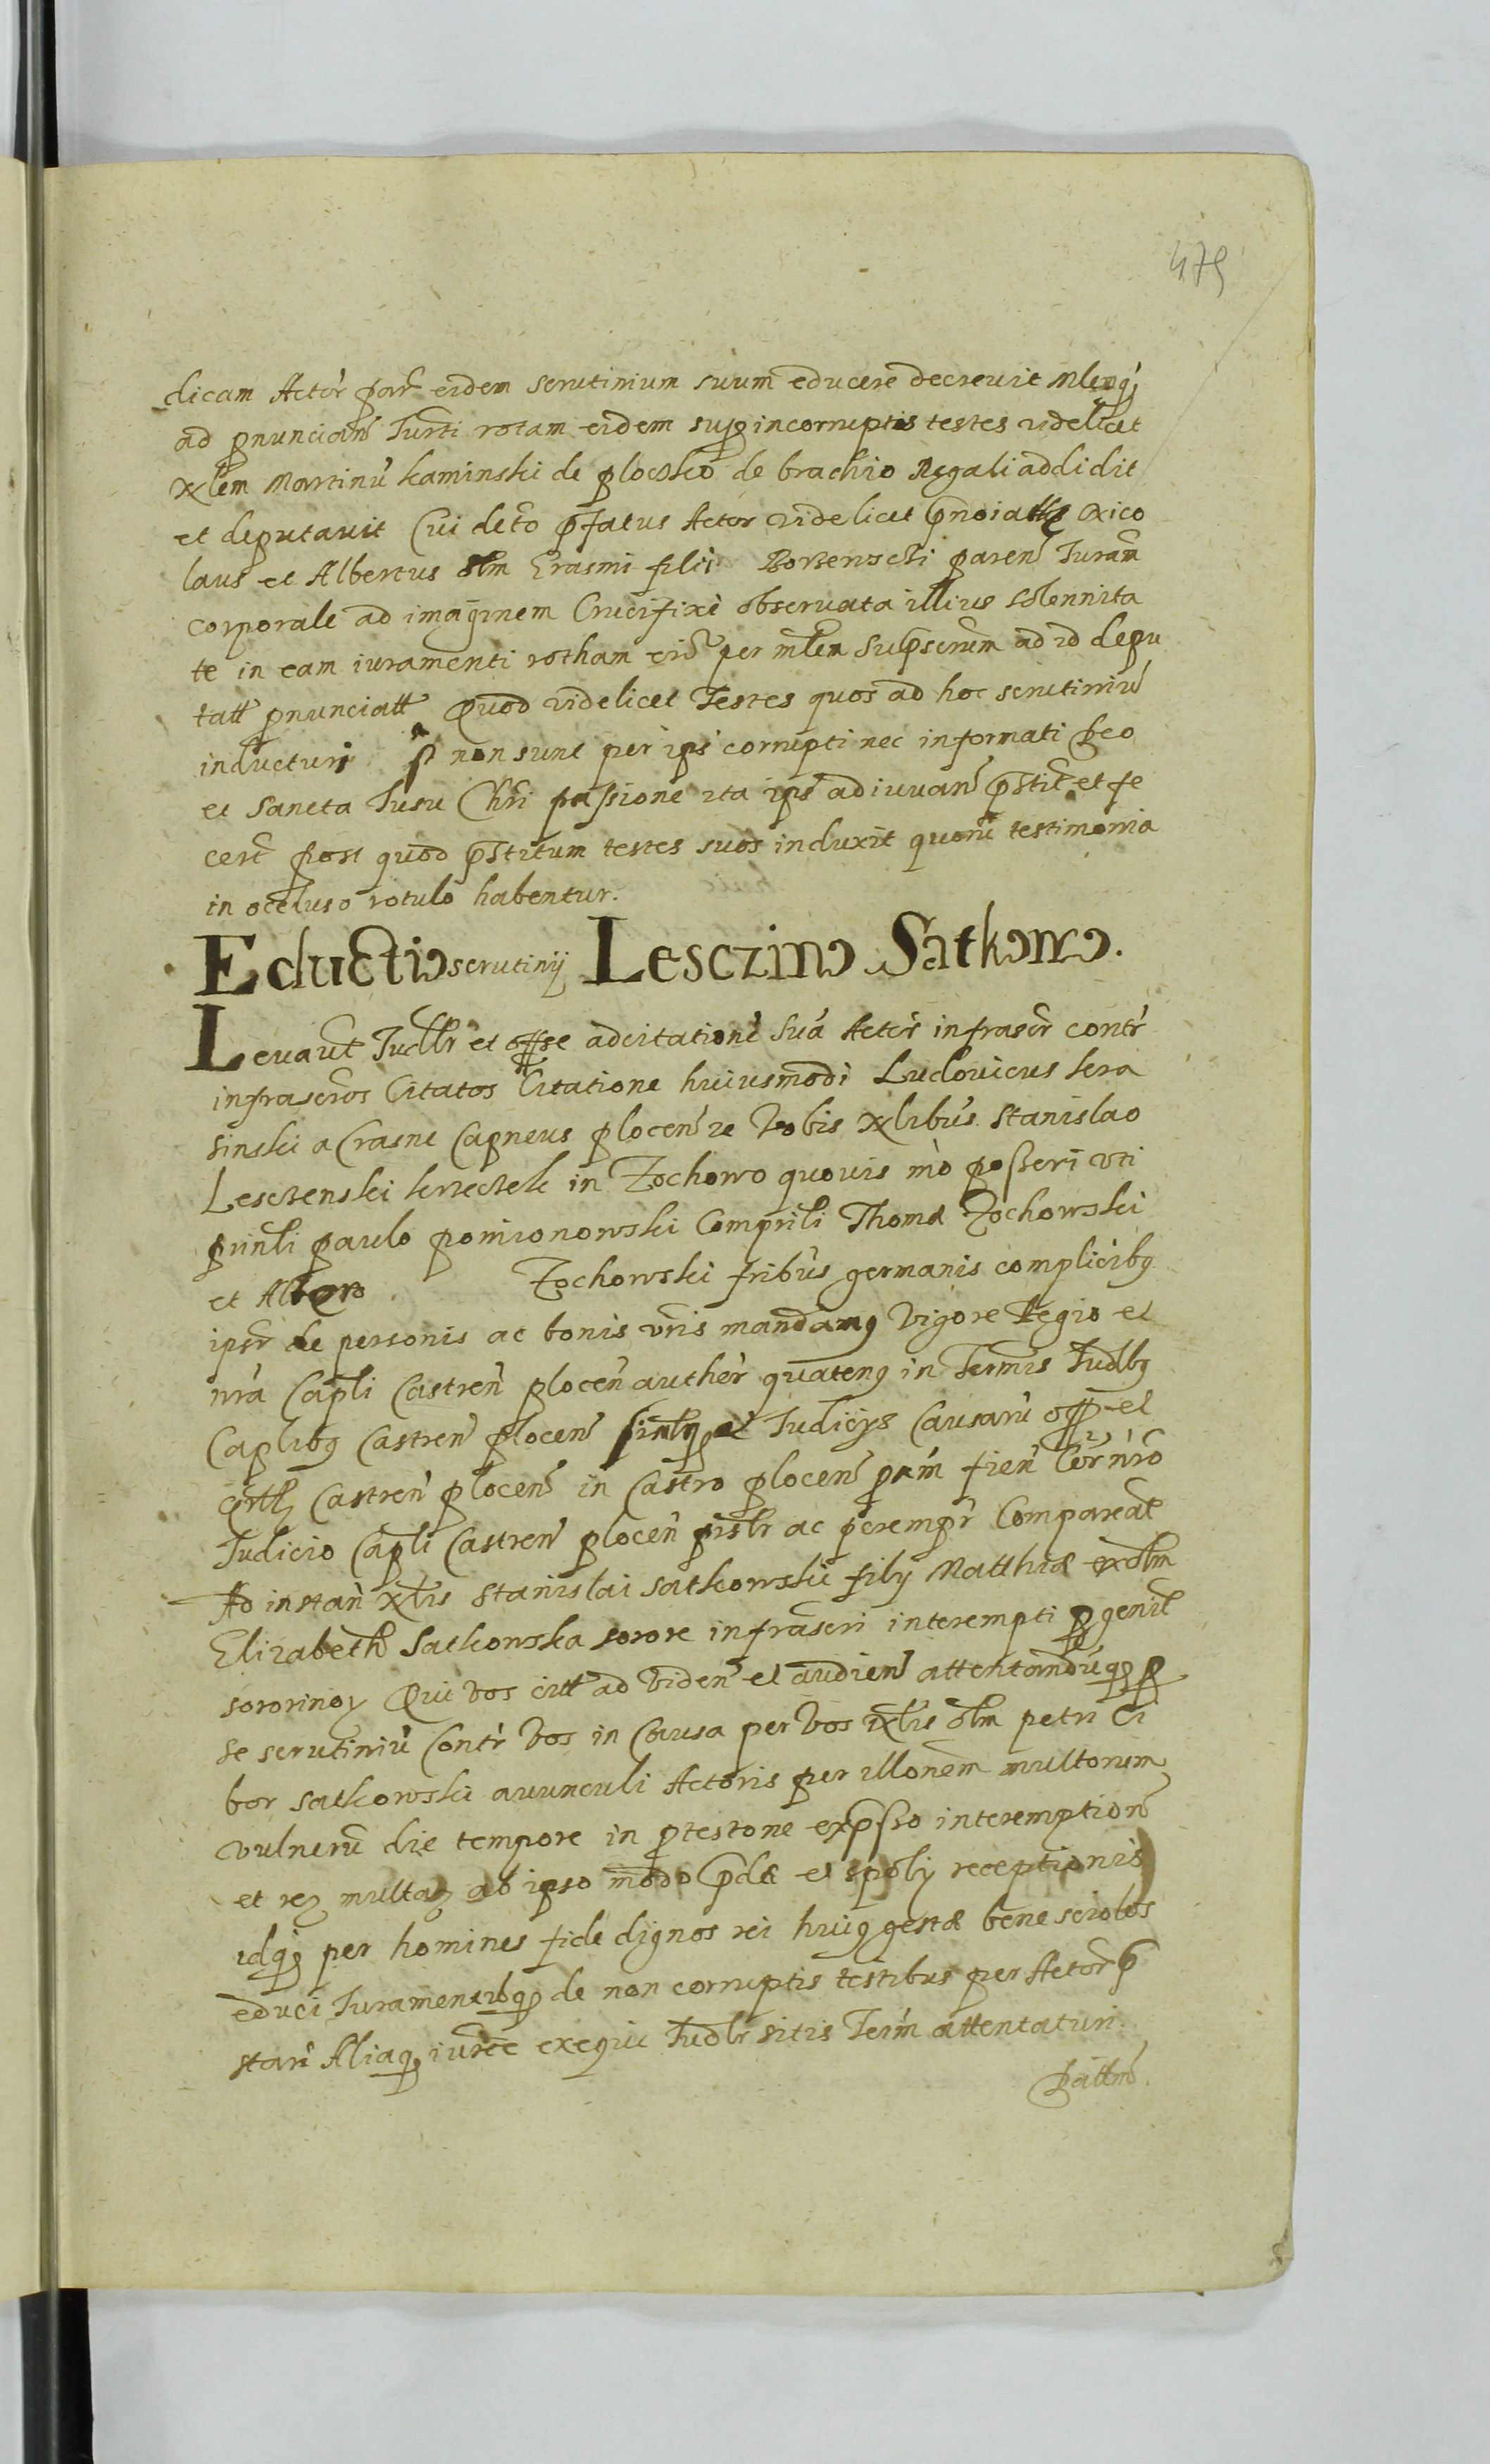 479
dicam Actor parc eidem scrutinium suum educere decrevit Mlemq;
ad pnuncian Iurti rotam eidem sup incorruptis testes videlicet
Xlem Martinu kaminski de plocsko de brachio Regali addidit
et deputavit Cui decto pfatus Actor videlicet pnoiatus Nico
laus et Albertus olm Erasmi filii paren Iuram
corporale ad imaginem Crucifixi observata illius solennita
te in eam iuramenti rotham eis per mlem supserum ad id depu
tatt pnunciatt Quod videlicet Testes quos ad hoc scrutiniu
inducturi st non sunt per ips corrupti nec informati Deo
et Sancta Iusu Chri passione ita ips adiuvan pstit et fe
cert post quod pstitum testes suos induxit quoru testimonia
in occluso rotulo habentur.
Eductio scrutinij Lesczino Satkowo.
Levavt Iudlr et offse adcitatione sua Actor infrascr contr
infrascros Citatos Citatione huiusmodi Ludovicus kra
sinski a Crasne Capneus plocen ze Vobis Xlibus Stanislao
Lesczenski in Zochowo quovis mo posseri uti
prinli paulo pomionowski Comprili Thomæ Zochowski
et Albero Zochowski fribus germanis complicibq
ipsr de personis ac bonis vris mandamq Vigore Regio et
nra Capli Castren plocen auther quatenq in Termis Iudbq
Caplibq Castren plocen sinlq et Iudicijs Causaru off et
Castren plocen in Castro plocen pxm fien Cor nro
Iudicio Capli Castren plocen pislr ac perempr Compareat
Ad instan Xlis Stanislai Satkowski filij Matthiæ ex olm
Elizabeth Satkowska sorore infrascri interempti pgenit
sororinoy Qui vos citt ad Viden et audien attentanduq; p
se scrutiniu Contr Vos in Causa per Vos ixlis olm petri Ci
bor Satkowski avunculi Actoris per illonem multorum
vulneru die tempore in ptestone expsso interemption
et rez multaz ab ipso modo pdæ et spolij receptionis
idq; per homines fide dignos rei huiq gestæ bene sciolos
educi Iuramentubq; de non corruptis testibus per Actor p
stari Aliaq; iurte exequi Iudlr sitis Term attentaturi.